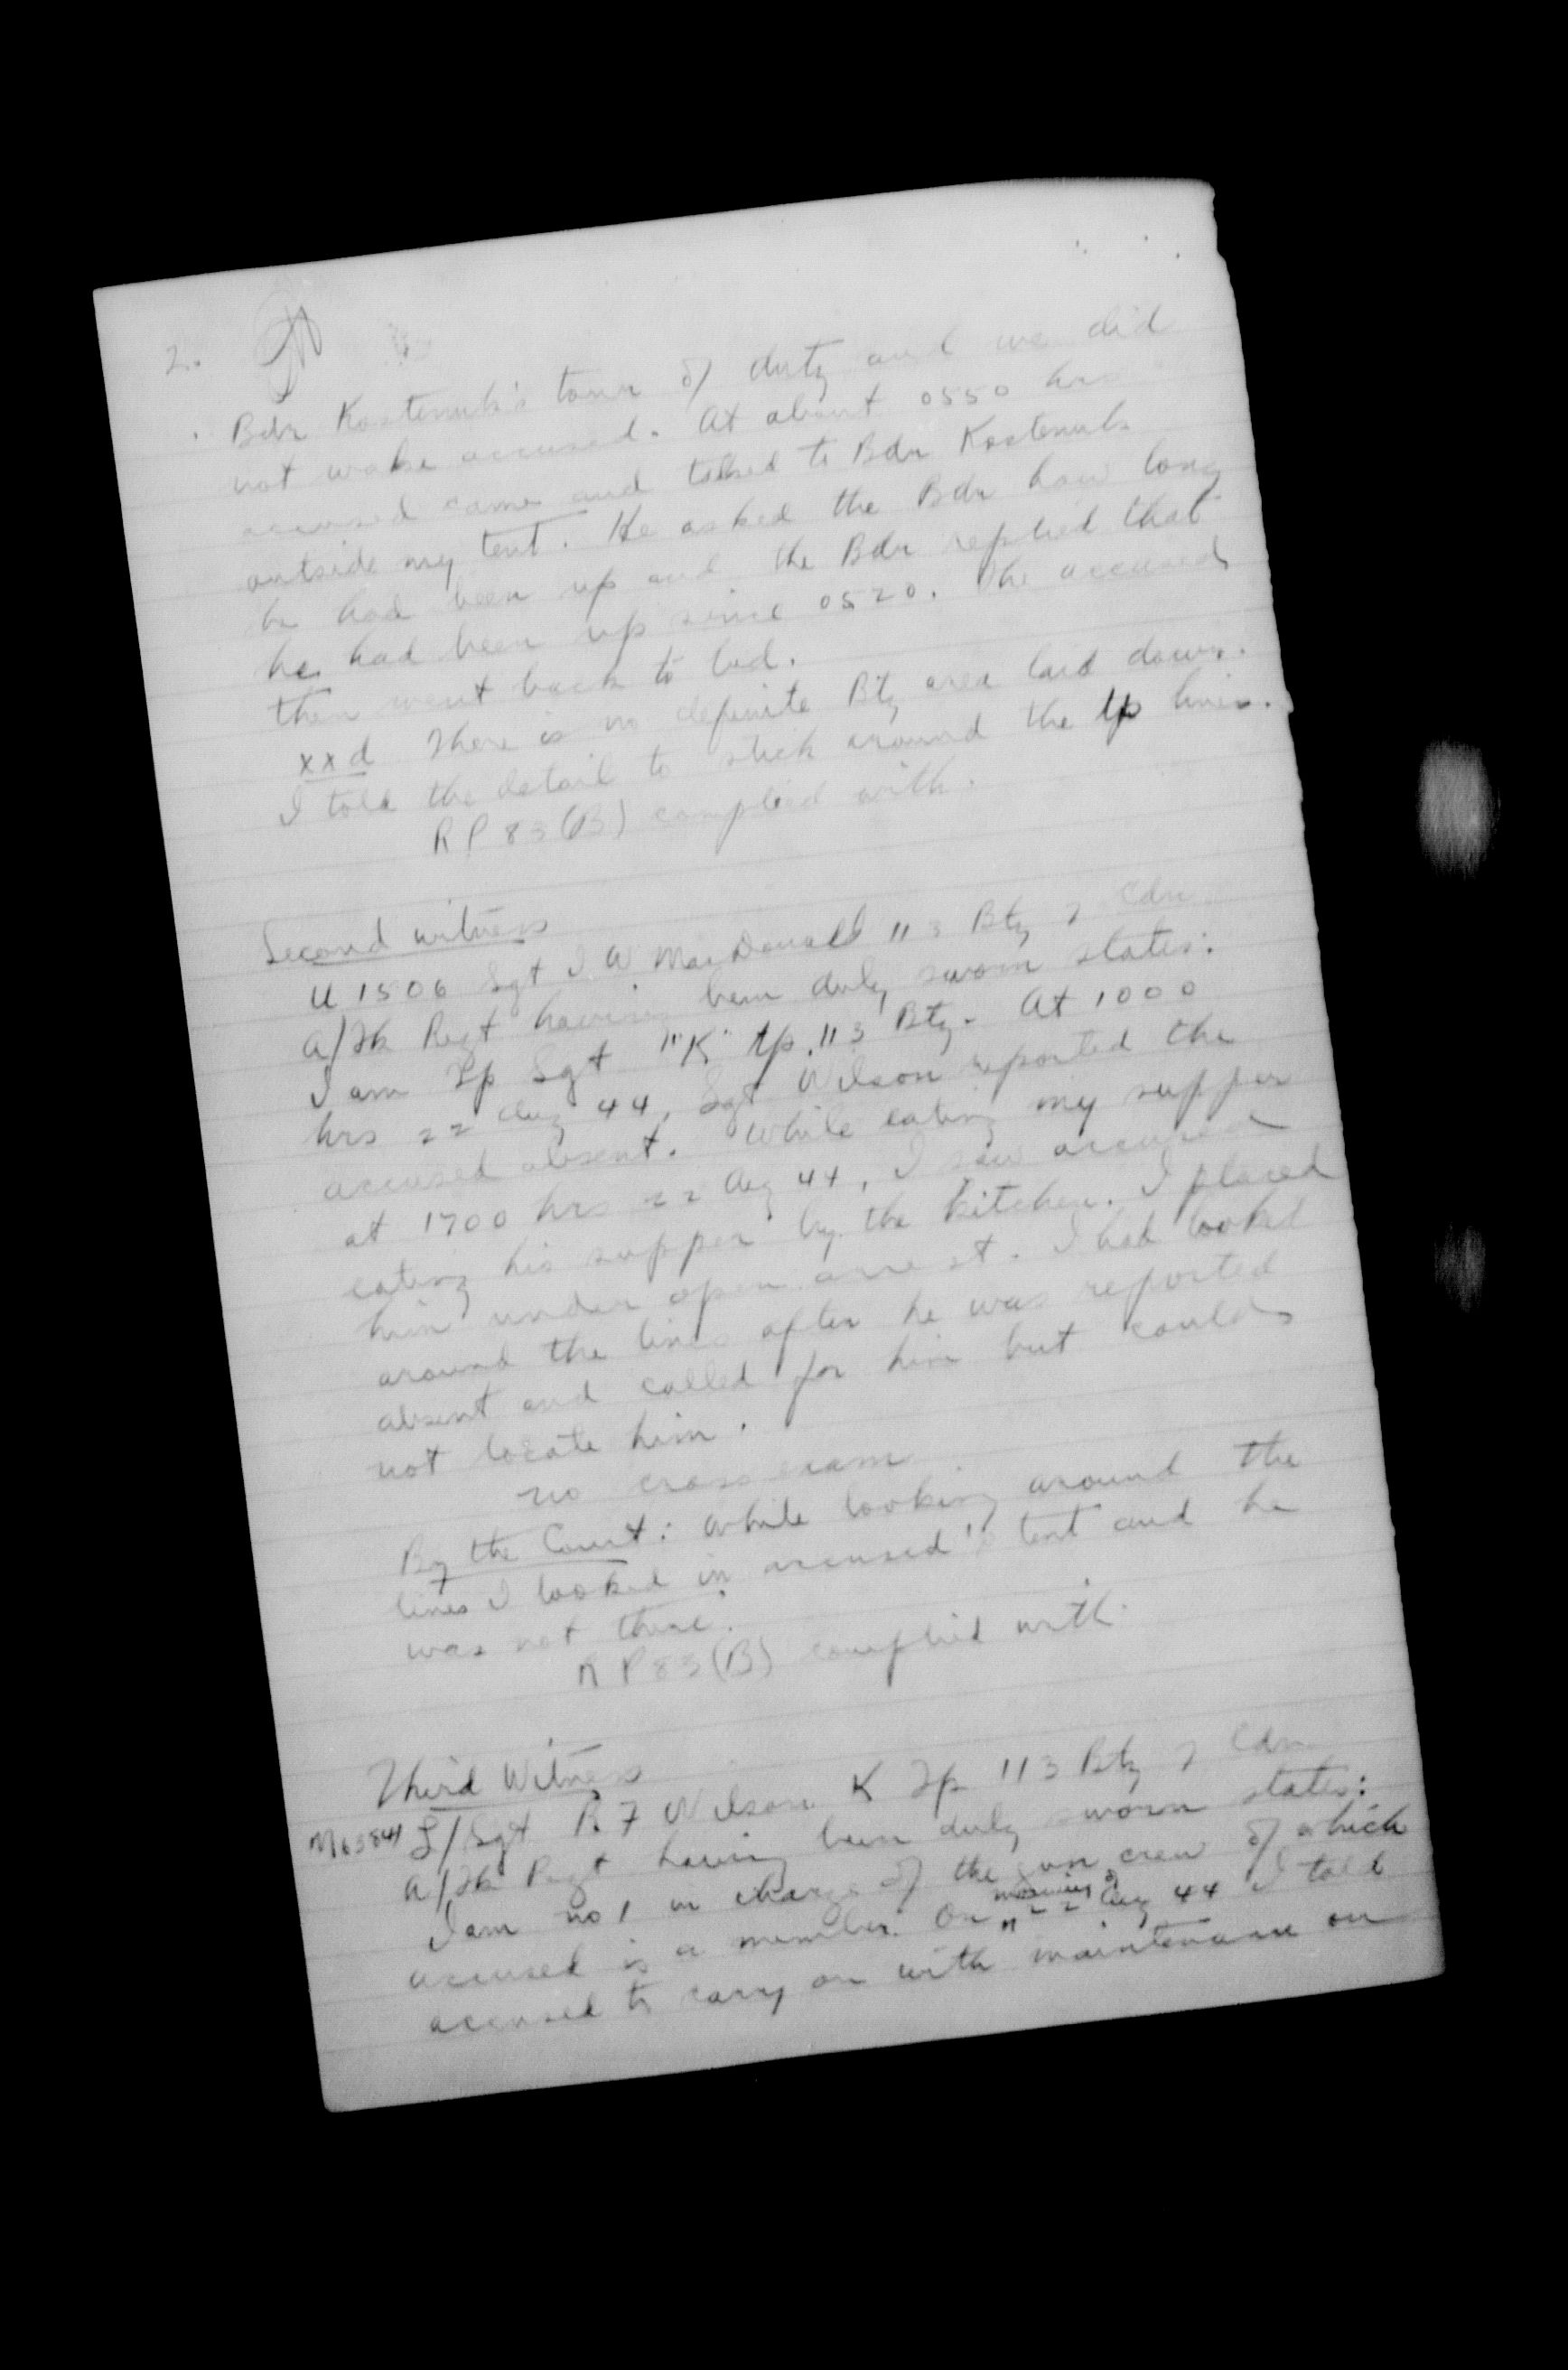 2.
Bdr Kostenuk's tour of duty and we did
not wake accused. At about 0550 hrs
accused came and talked to Bdr Kostenuk
outside my tent. He asked the Bdr how long
he had been up and the Bdr replied that
he had been up since 0520. The accused
then went back to bed.
xxd There is no definite Bty area laid down.
I told the detail to stick around the tp lines.
RP 83(B) complied with.
Second witness
U 1506 Sgt I W MacDonald 113 Bty 7 Cdn
A/Tk Regt having been duly sworn states:
I am Tp Sgt "K" tp 113 Bty. At 1000
hrs 22 Aug 44, Sgt Wilson reported the
accused absent. While eating my supper
at 1700 hrs 22 Aug 44, I saw accused
eating his supper by the kitchen. I placed
him under open arrest. I had looked
around the lines after he was reported
absent and called for him but could
not locate him.
No cross exam
By the Court: While looking around the
lines I looked in accused's tent and he
was not there.
RP 83(B) complied with
Third Witness
M63841 L/Sgt R. F Wilson K Tp 113 Bty 7 Cdn
A/Tk Regt having been duly sworn states:
I am no 1 in charge of the gun crew of which
accused is a member. On morning of 22 Aug 44 I told
accused to carry on with maintenance on